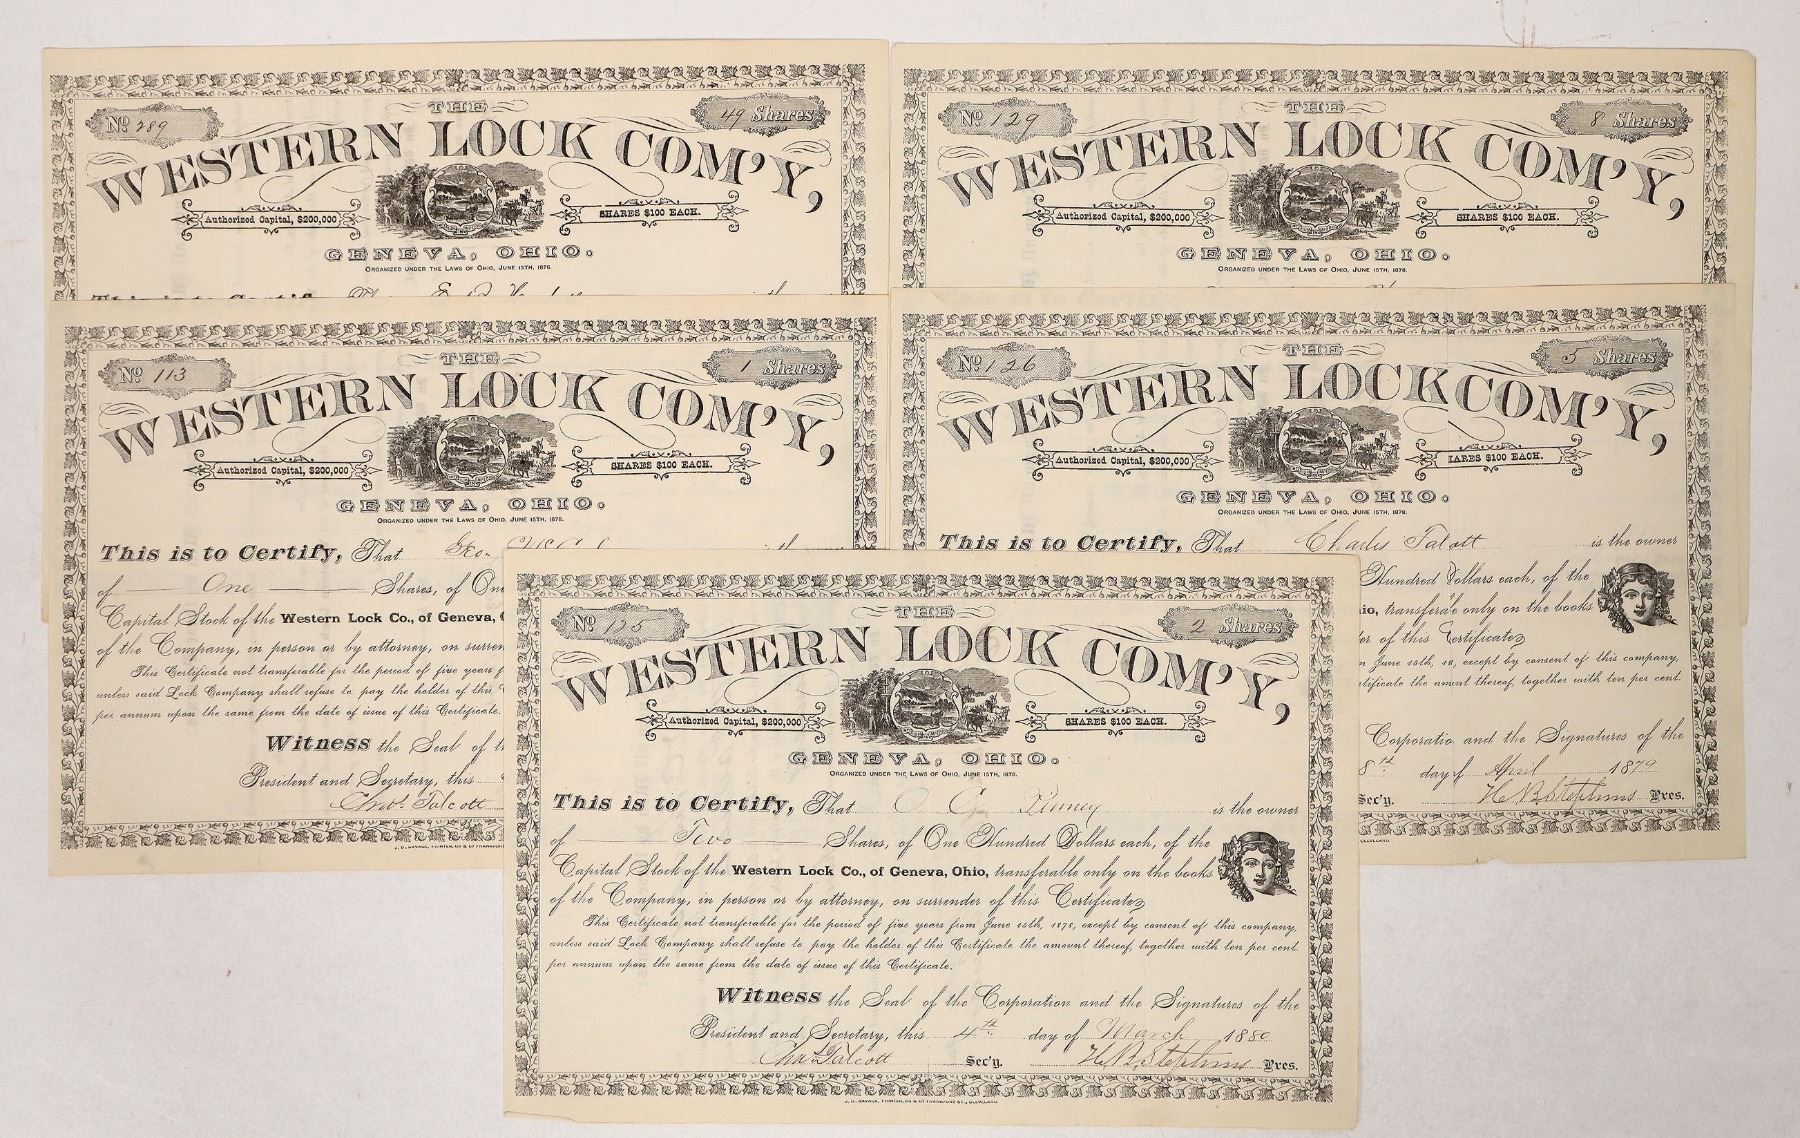 No 289
49 Shares
THE
WESTERN LOCK COM'Y,
Authorized Capital, $200,000
SHARES $100 EACH.
GENEVA, OHIO.
ORGANIZED UNDER THE LAWS OF OHIO, JUNE 15TH, 1878.
This is to Certify,
No 129
8 Shares
THE
WESTERN LOCK COM'Y,
Authorized Capital, $200,000
SHARES $100 EACH.
GENEVA, OHIO.
ORGANIZED UNDER THE LAWS OF OHIO, JUNE 15TH, 1878.
No 113
1 Shares
THE
WESTERN LOCK COM'Y,
Authorized Capital, $200,000
SHARES $100 EACH.
GENEVA, OHIO.
ORGANIZED UNDER THE LAWS OF OHIO, JUNE 15TH, 1878.
This is to Certify, That Geo.
of One Shares, of One
Capital Stock of the Western Lock Co., of Geneva,
of the Company, in person or by attorney, on surren
This Certificate not transferable for the period of five years
unless said Lock Company shall refuse to pay the holder of this
per annum upon the same from the date of issue of this Certificate.
Witness the Seal of
President and Secretary, this
Chas. Talcott
No 126
5 Shares
THE
WESTERN LOCK COM'Y,
Authorized Capital, $200,000
IARES $100 EACH.
GENEVA, OHIO.
ORGANIZED UNDER THE LAWS OF OHIO, JUNE 15TH, 1878.
This is to Certify, That Charles Talcott is the owner
Hundred Dollars each, of the
io, transfera'le only on the books
of this Certificate
June 15th, 18, except by consent of this company,
tificate the amunt thereof, together with ten per cent.
Corporatio and the Signatures of the
8th day of April 1879
Sec'y. H B Stephens Pres.
No 125
2 Shares
THE
WESTERN LOCK COM'Y,
Authorized Capital, $200,000
SHARES $100 EACH.
GENEVA, OHIO.
ORGANIZED UNDER THE LAWS OF OHIO, JUNE 15TH, 1878.
This is to Certify, That O. C. Pinney is the owner
of Two Shares, of One Hundred Dollars each, of the
Capital Stock of the Western Lock Co., of Geneva, Ohio, transferable only on the books
of the Company, in person or by attorney, on surrender of this Certificate
This Certificate not transferable for the period of five years from June 15th, 1878, except by consent of this company,
unless said Lock Company shall refuse to pay the holder of this Certificate the amount thereof, together with ten per cent.
per annum upon the same from the date of issue of this Certificate.
Witness the Seal of the Corporation and the Signatures of the
President and Secretary, this 4th day of March 1880
Chas Talcott Sec'y. H B Stephens Pres.
J. B. SAVAGE, PRINTER, 65 & 67 FRANKFORT ST., CLEVELAND.